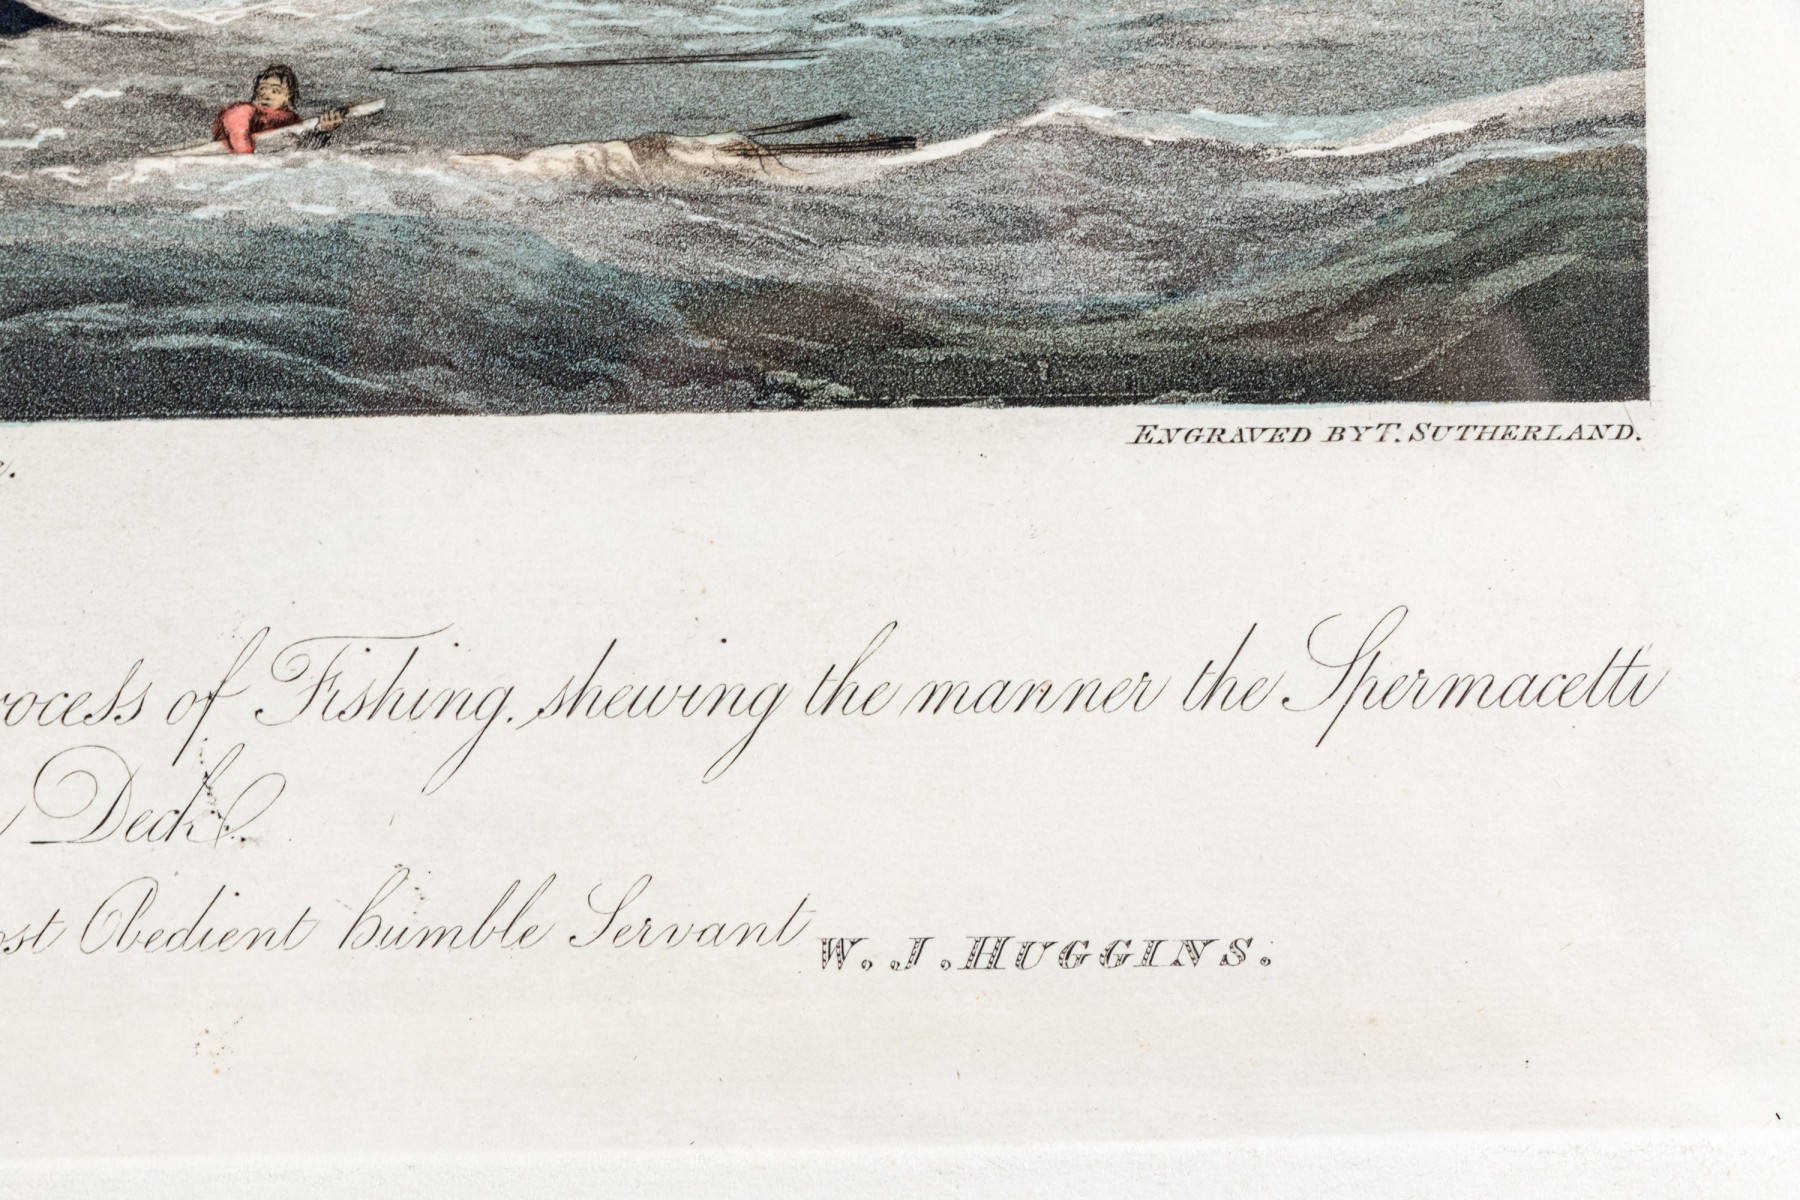 ENGRAVED BY T. SUTHERLAND.
of Fishing. shewing the manner the Spermacetti
Deck &.
Obedient humble Servant W. J. HUGGINS.